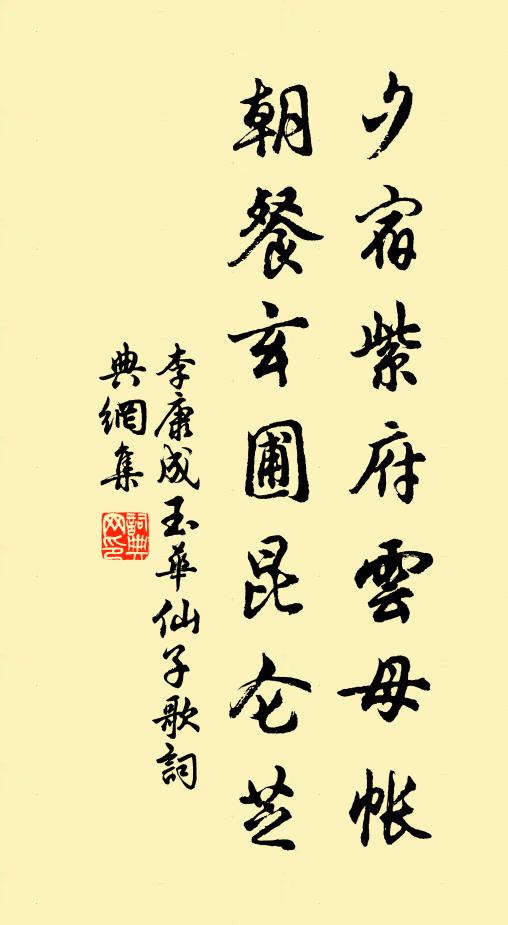 夕宿紫府雲母帳
朝餐玄圃昆仑芝
李康成玉華仙子歌詞
典網集
詞典
网印